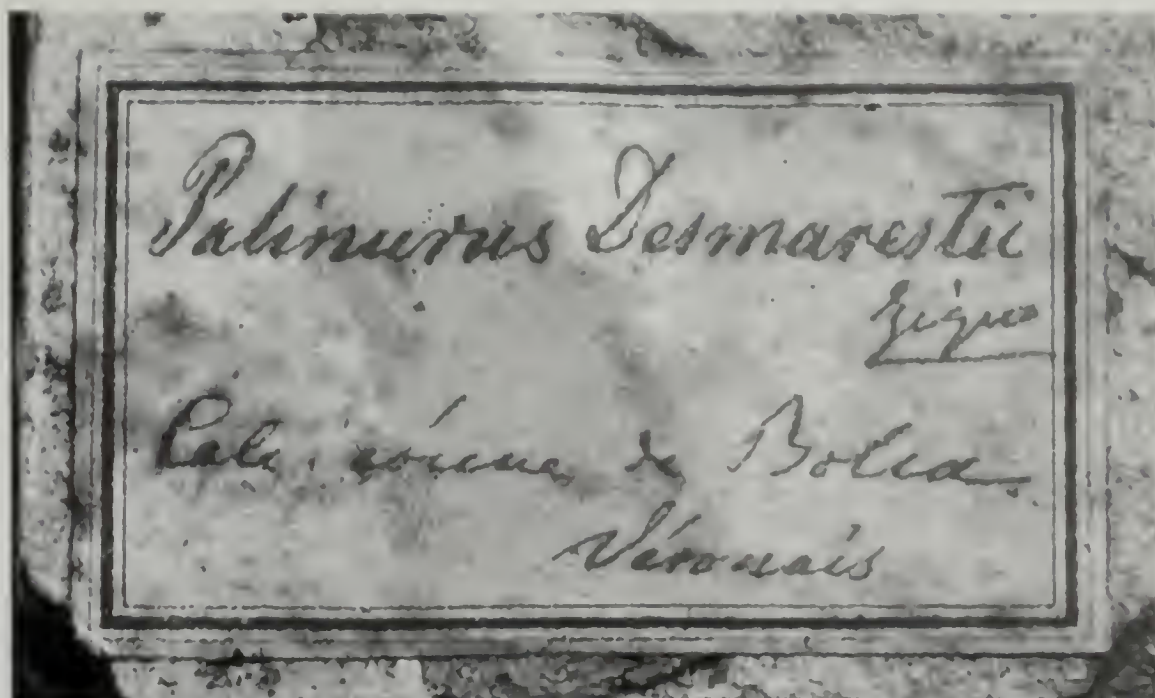 Palinurus Desmarestii
Zigno
Calc. éocene de Bolca
Véronais